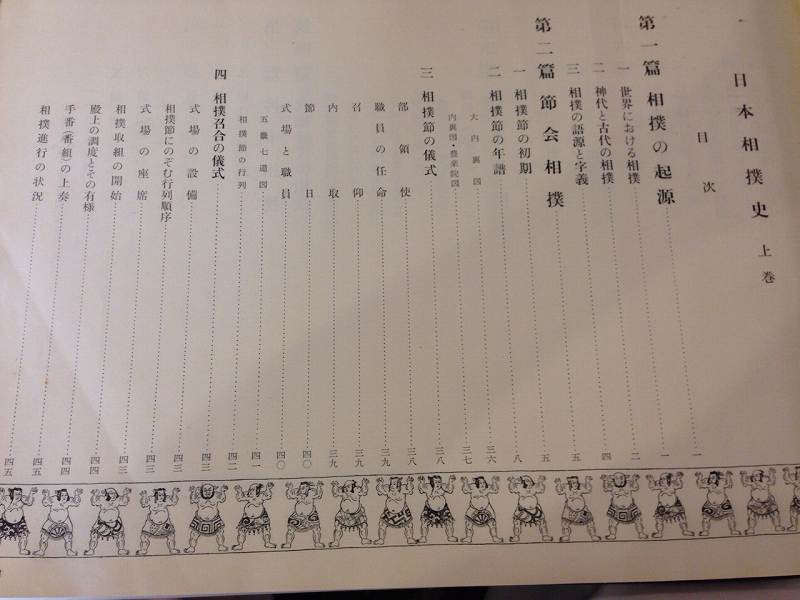 一
日本相撲史 上巻
目次
第一篇 相撲の起源……一
一 世界における相撲……一
二 神代と古代の相撲……二
三 相撲の語源と字義……四
第二篇 節会相撲……五
一 相撲節の初期……五
二 相撲節の年譜……八
大内裏図……三六
内裏図・豊楽院図……三七
三 相撲節の儀式……三八
部領使……三八
職員の任命……三九
召仰……三九
内取……三九
節日……四〇
式場と職員……四〇
五畿七道図……四一
相撲節の行列……四二
四 相撲召合の儀式……四三
式場の設備……四三
相撲節にのぞむ行列順序……四三
式場の座席……四三
相撲取組の開始……四四
殿上の調度とその有様……四四
手番(番組)の上奏……四五
相撲進行の状況……四五